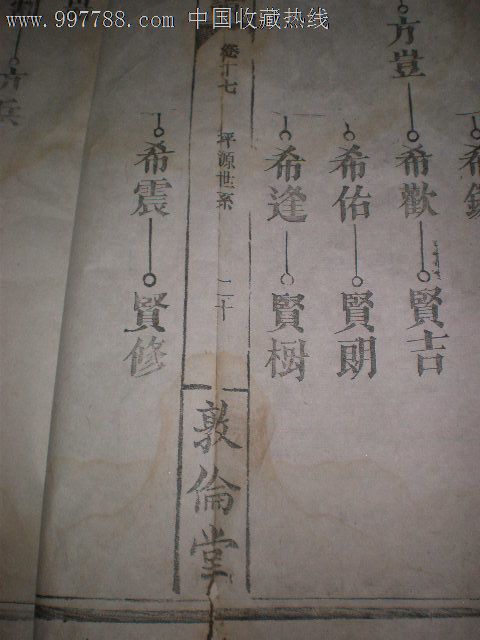 www.997788.com 中国收藏热线
方豈
希歡
賢吉
希佑
賢朗
希逢
賢樹
卷十七
坪源世系
二十
敦倫堂
希震
賢修